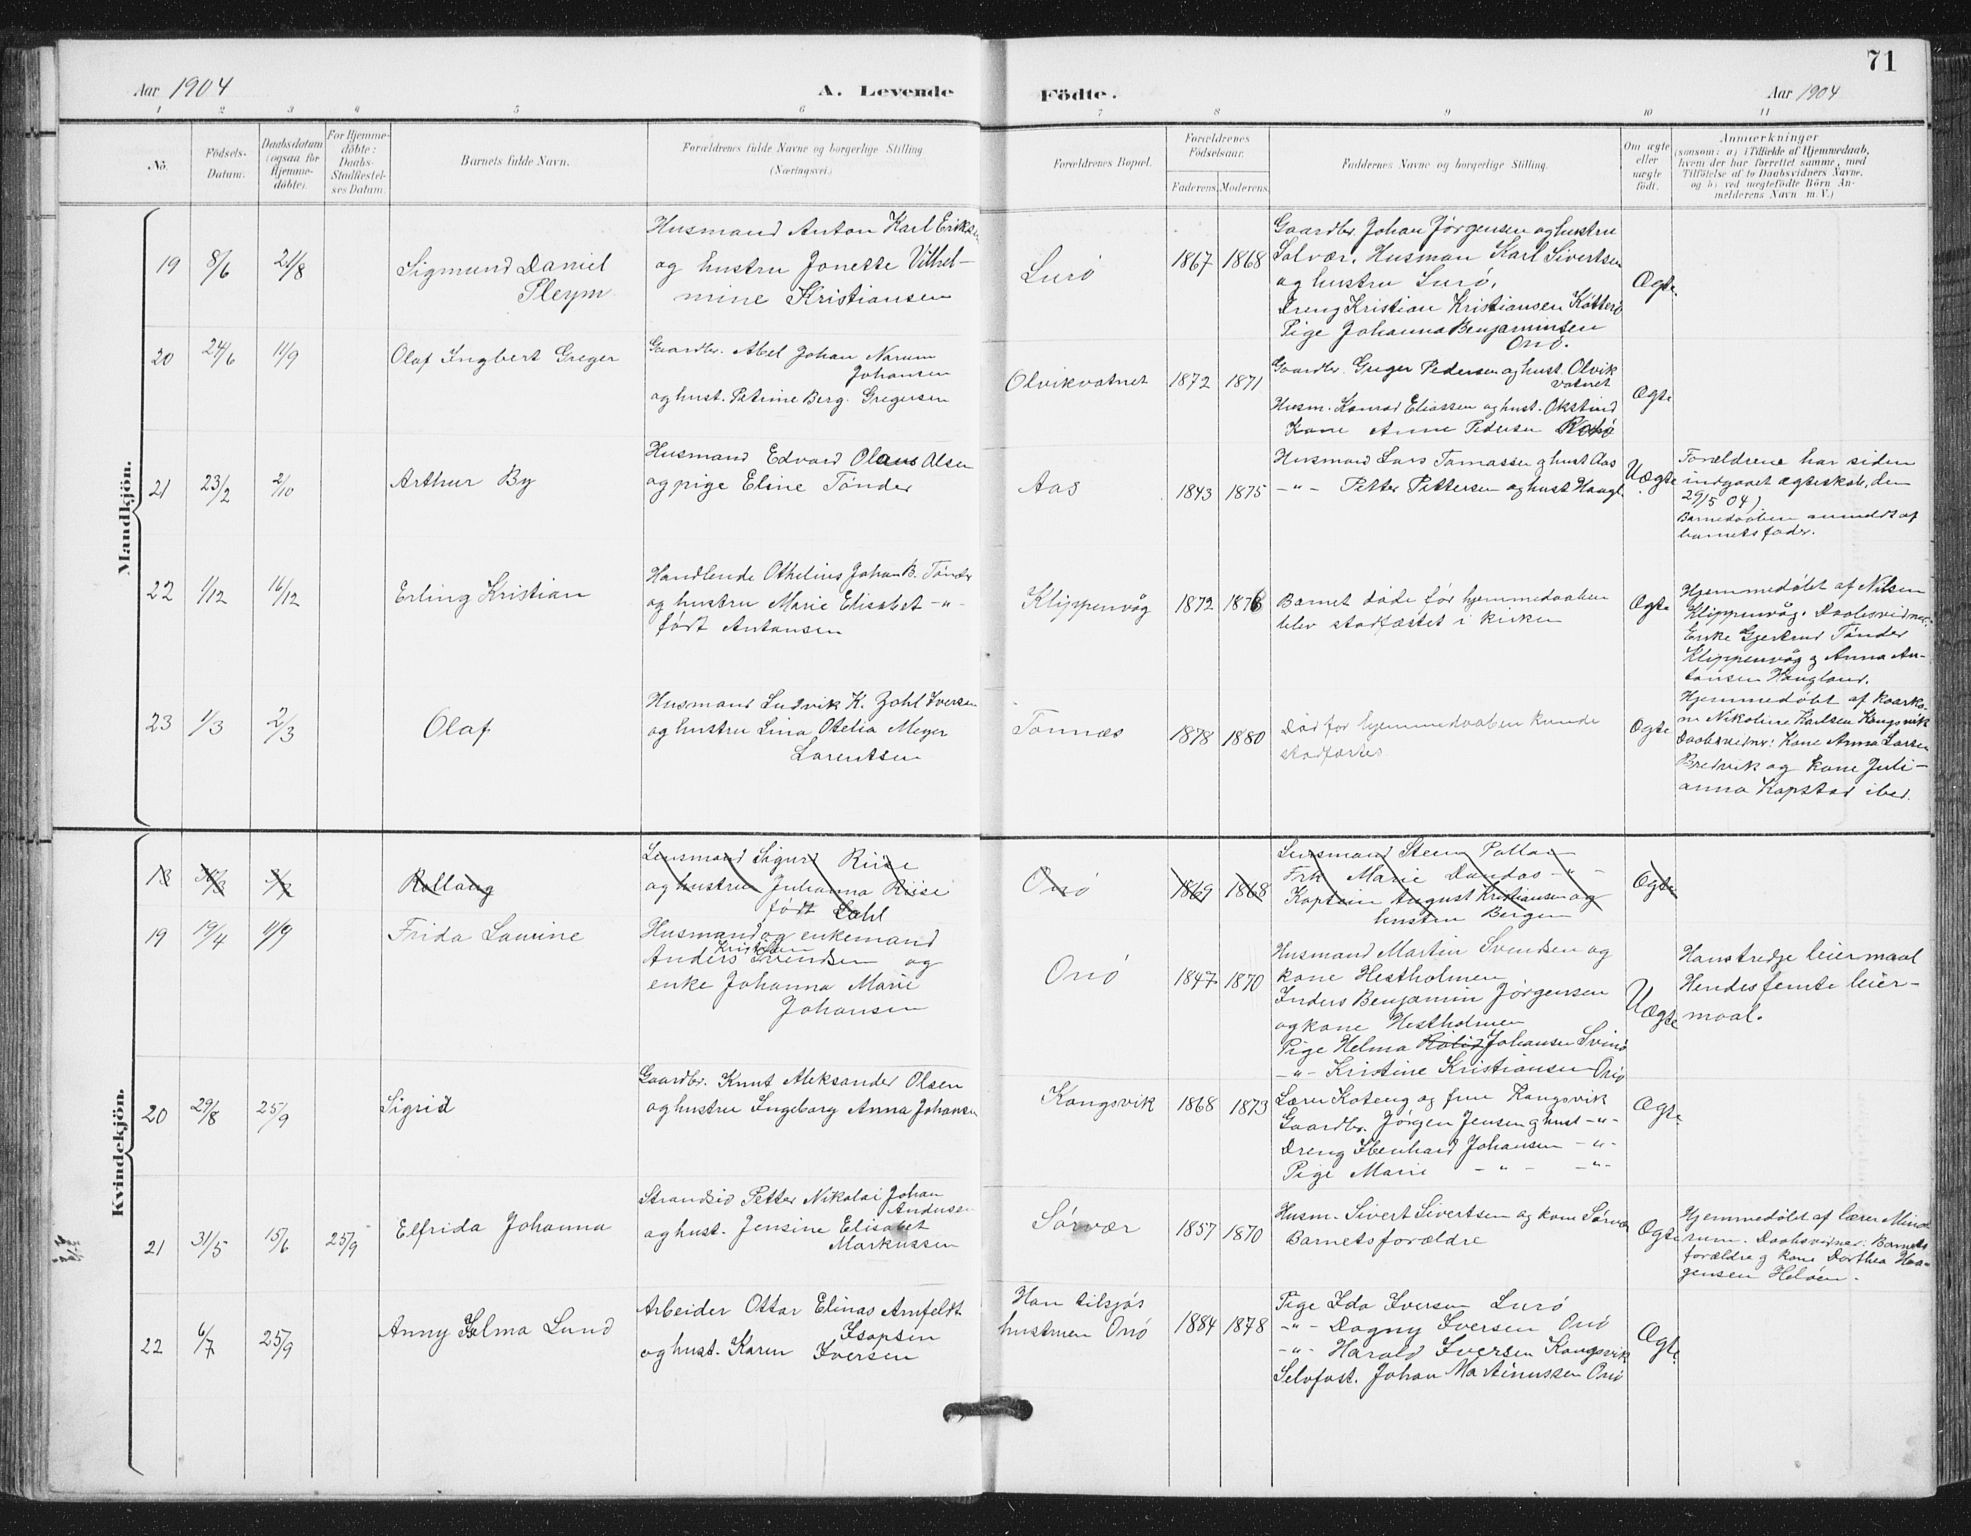 71
Aar 1904
A. Levende
Födte.
Aar 1904
1 2 3 4 5 6 7 8 9 10 11
No.
Födsels-
Datum.
Daabsdatum
(ogsaa for
Hjemme-
döbte).
For Hjemme-
döbte:
Daabs-
Stadfæstel-
ses Datum.
Barnets fulde Navn.
Forældrenes fulde Navne og borgerlige Stilling
(Næringsvei.)
Forældrenes Bopæl.
Forældrenes
Födselsaar.
Faderens. Moderens.
Faddernes Navne og borgerlige Stilling.
Om ægte
eller
uægte
födt.
Anmærkninger
(saasom: a) i Tilfælde af Hjemmedaab,
hvem der har forrettet samme, med
Tilföielse af to Daabsvidners Navne,
og b) ved uegtefödte Börn An-
melderens Navn m. V.)
Mandkjön.
19 8/6 21/8
Sigmund Daniel
Pleym
Husmand Anton Karl Eriksen
og hustru Jonette Vilhel-
mine Kristiansen
Lurö
1867 1868
Gaardbr. Johan Jørgensen og hustru
Solvær. Husman Karl Sivertsen
og hustru Lurö,
Dreng Kristian Kristiansen Kötterö
Pige Johanna Benjaminsen
Onö.
Ægte.
20 24/6 11/9
Olaf Ingbert Greger
Gaardbr. Abel Johan Narum
Johansen
og hust. Petrine Berg. Gregersen
Olvikvatnet
1872 1871
Gaardbr. Greger Pedersen og hust. Olvik
vatnet
Husm. Konrad Eliassen og hust. Okstind
Kone Anne Pedersen
Ægte
21 23/2 2/10
Arthur By
Husmand Edvard Olaus Olsen
og pige Eline Tönder
Aas
1843 1875
Husmand Lars Tomassen g hust Aas
-"- Petter Pettersen og hust Haugl.
Uægte
Forældrene har siden
indgaaet ægteskab, den
29/5 04).
Barnedaaben anmeldt af
barnets fader.
22 1/12 16/12
Erling Kristian
Handlende Othelius Johan B. Tönder
og hustru Marie Elisabet -"-
født Antonsen
Klippenvåg
1872 1876
Barnet döde før hjemmedaaben
blev stadfæstet i kirken
Ægte
Hjemmedöbt af Nilsen
Klippenvåg. Daabsvidner:
Enke Gjertrud Tönder
Klippenvåg g Anna An-
tonsen Haugland.
23 1/3 2/3
Olaf
Husmand Ludvik K. Zahl Iversen
og hustru Lina Otelia Meyer
Lorentsen
Tonnæs
1878 1880
Död for hjemmedaaben kunde
stadfæstes
Ægte
Hjemmedöbt af
Nikoline Karlsen Kongsvik
Daabsvidner: Kone Anna Larsen
Bredvik og kone Juli-
anna Kopstad ibid.
Kvindekjön.
13
Rollaug
Lensmand Sigurd Riise
og hustru Johanna Riise
født Dahl
Onö
1869 1868
Lensmand Steen
Frk Marie Dundas -"-
Kaptein August Kristiansen og
hustru Bergen
Ægte
19 19/4 11/9
Frida Laurine
Husmand og enkemand
Kristian
Anders Svendsen og
enke Johanna Marie
Johansen
Onö
1847 1870
Husmand Martin Svendsen og
kone Hestholmen
Anders Benjamin Jørgensen
og kone Hestholmen
Pige Helma Johansen Svinö
-"- Kristine Kristiansen Onö
Uægte
Hans tredje leiermaal
Hendes femte leier-
maal.
20 29/8 25/9
Sigrid
Gaardbr. Knut Aleksander Olsen
og hustru Ingeborg Anna Johansen
Kongsvik
1868 1873
Lærer Koteng og frue Kongsvik
Gaardbr. Jørgen Jensen g hust -"-
Dreng Johansen -"-
Pige Marie -"- -"-
Ægte
21 31/5 15/6 25/9
Elfrida Johanna
Strandsid Petter Nikolai Johan
Andersen
og hust. Jensine Elisabet
Markussen
Sörvær
1857 1870
Husm. Sivert Sivertsen og kone Sörvær
Barnets forældre
Ægte
Hjemmedöbt af lærer Mind
rum. Daabsvidner: Barnets
forældre g kone Dorthea Haa-
gensen
22 6/7 25/9
Anny Helma Lund
Arbeider Ottar Elinas Amfeldt
Isaksen
og hust. Karen Iversen
Han tilsjös
hustruen Onö
1884 1878
Pige Ida Iversen Lurö
-"- Dagny Iversen Onö
-"- Harald Iversen Kongsvik
Selvfost. Johan Martinussen Onö
Ægte.